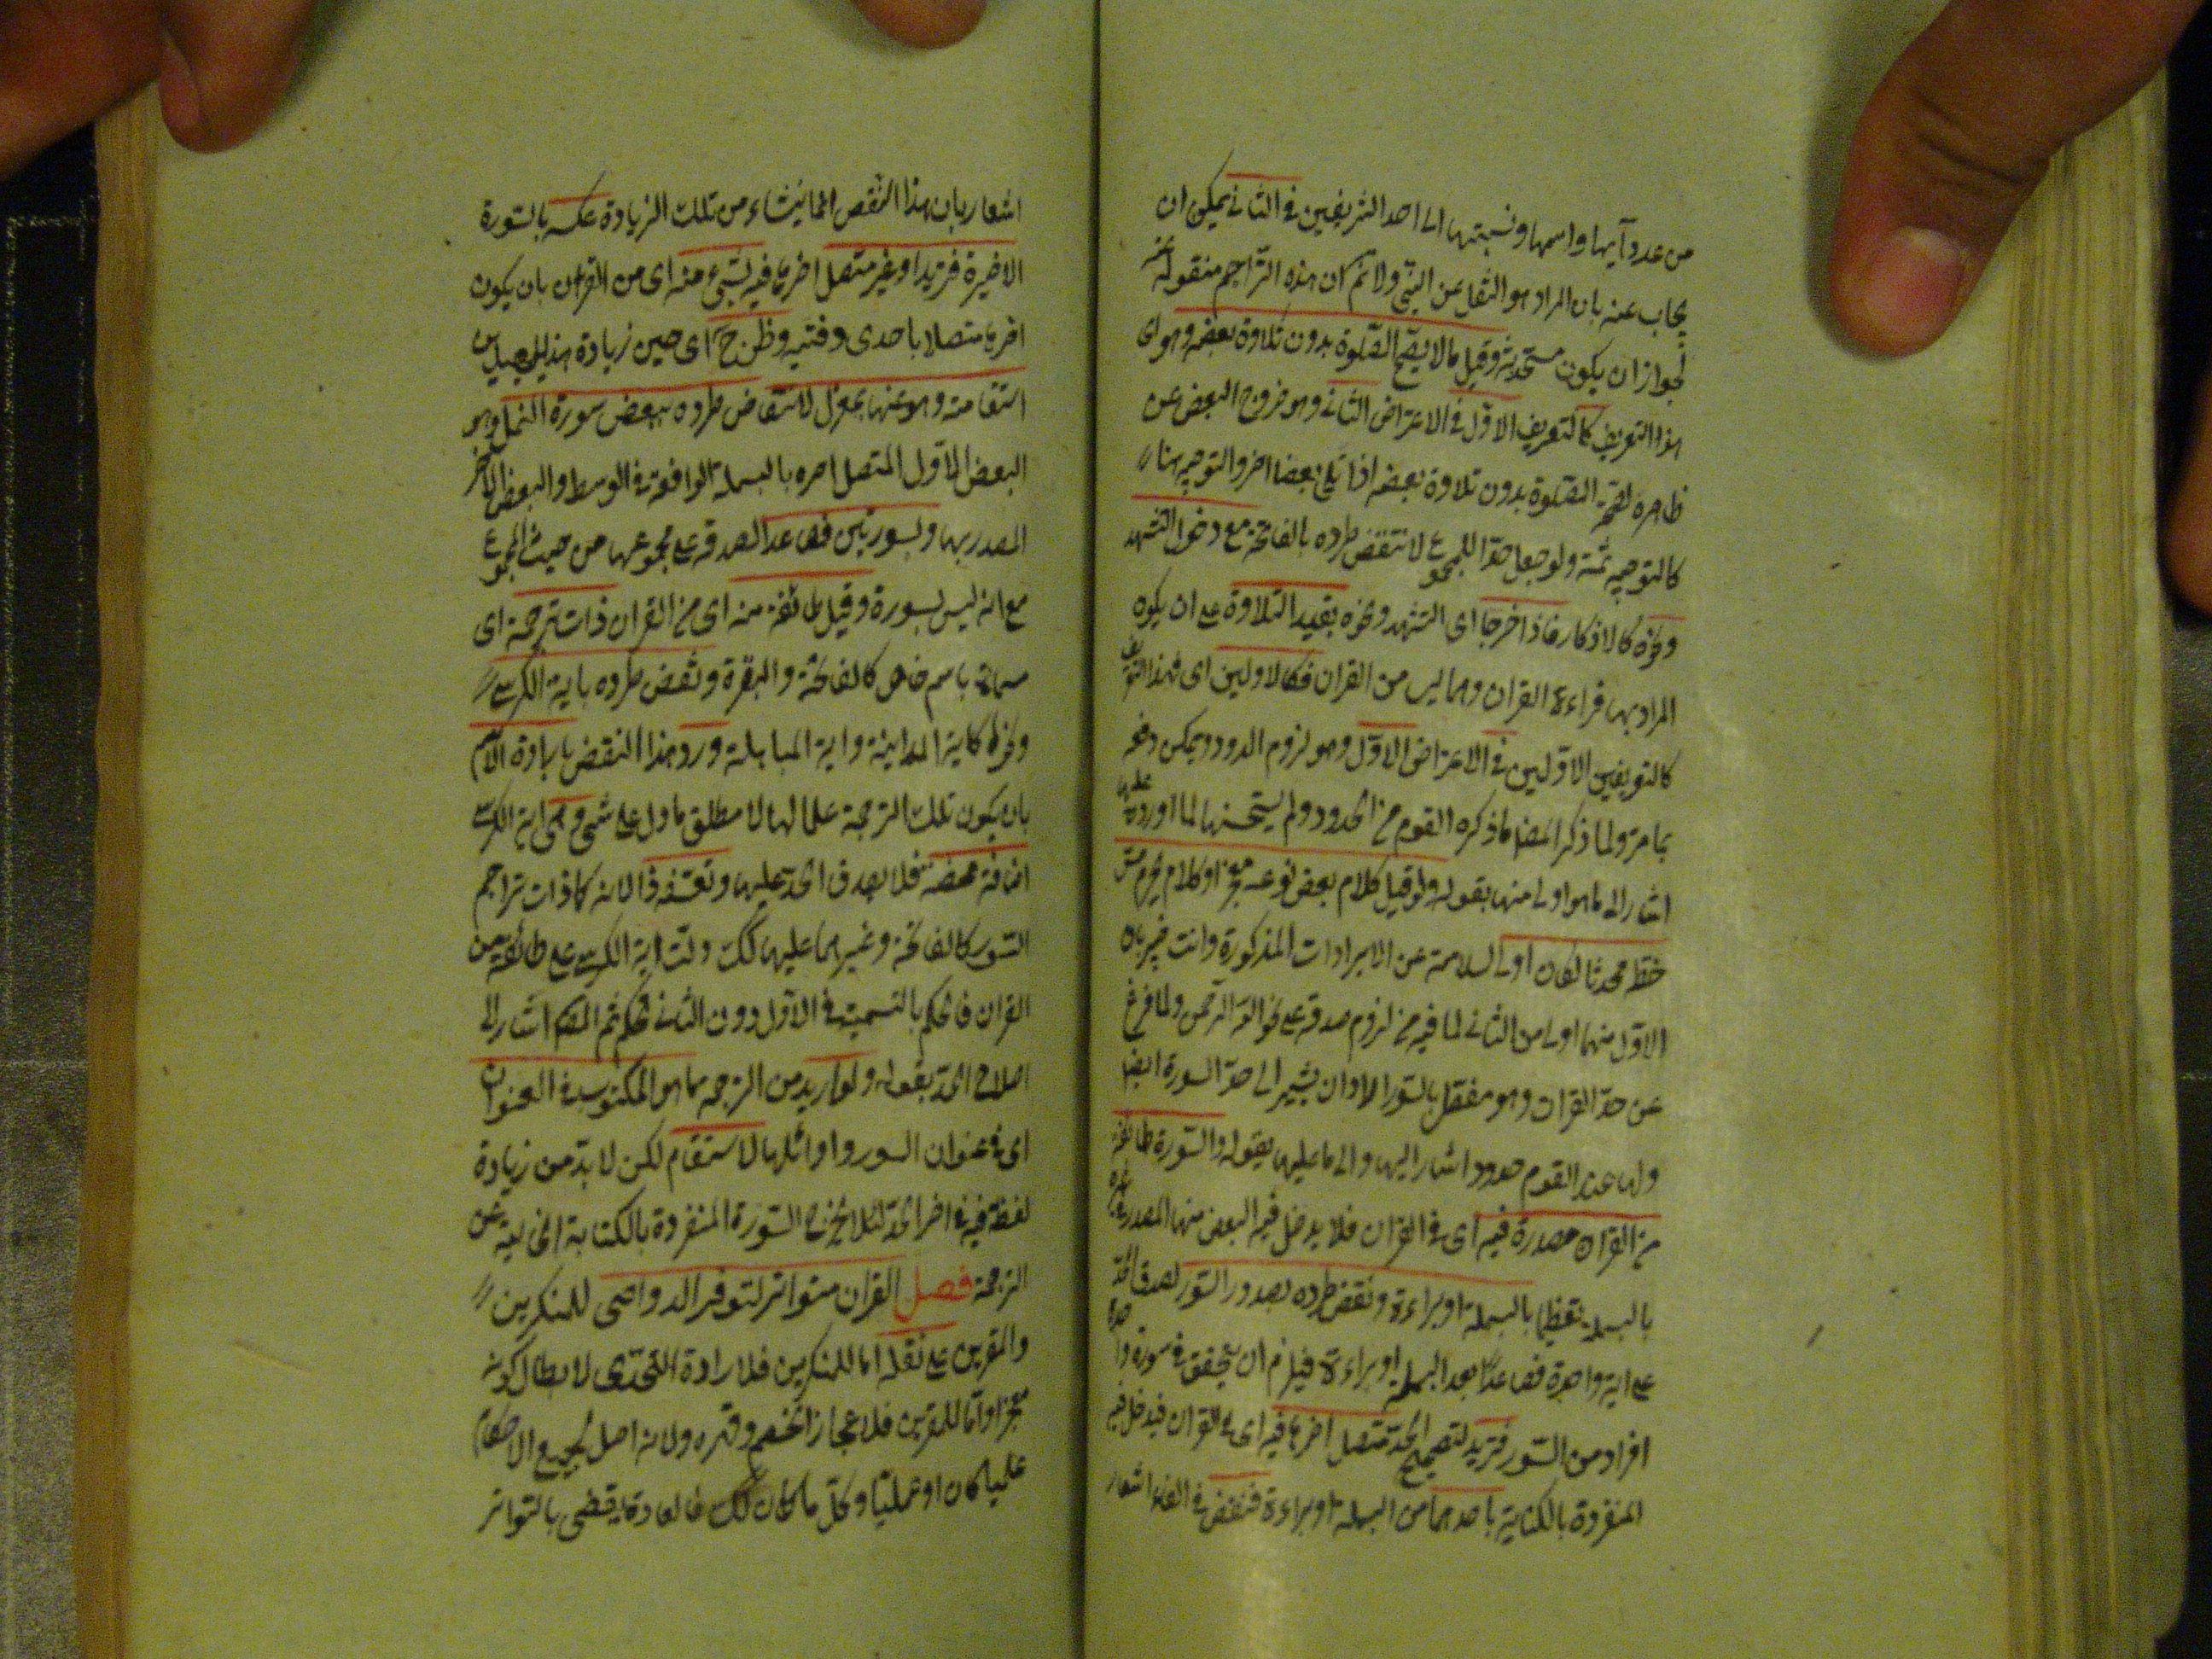 من عدد آيها واسمها ونسبتها الى احد الشريفين في الثاني يمكن ان
يجاب عنه بان المراد هو النقل عن النبي ولا ثم ان هذه التراجم منقولة عنه
لجواز ان يكون مستحدثة وقيل ما لا يصح الصلوة بدون تلاوة بعضه وهو اى
هذا التعريف كالتعريف الاول في الاعتراض الثاني وهو خروج البعض عن
ظاهره لصحة الصلوة بدون تلاوة بعضه اذا تلى بعضا اخر والتوجيه هنا
كالتوجيه ثمة ولو جعل حدا للمجموع لانتقض طرده بالفاتحة مع دخول التشهد
ونحوه كالاذكار فاذا خرجا اى التشهد ونحوه بقيد التلاوة على ان يكون
المراد بها قراءة القران وهما ليس من القران فكالاولين اى فهذا التعريف
كالتعريفين الاولين في الاعتراض الاول وهو لزوم الدور ويمكن دفعه
بما مر ولما ذكر المصنف ما ذكره القوم من الحدود ولم يستحسنها لما اورده عليها
اشار الى ما هو اولى منها بقوله ولو قيل كلام بعض نوعه معجز او كلام يحرم مس
خطه محدثا لكان اولى لسلامته عن الايرادات المذكورة وانت خبير بان
الاول منهما اولى من الثاني لما فيه من لزوم صدقه على نحو الله الرحمن ولما فرغ
عن حد القران وهو مفصل بالسور اراد ان يشير الى حد السورة ايضا
ولها عند القوم حدود اشار اليها والى ما عليها بقوله والسورة طائفة
من القران مصدرة فيه اى في القران فلا يدخل فيه البعض منها المصدر في غيره
بالبسملة تعظيما بالبسملة او براءة ونقض طرده بصدور السور لصدق الحد
على اية واحدة فصاعدا بعد البسملة او براءة فيلزم ان يتحقق في سورة واحدة
افراد من السور فزيد لتصحيح الحد متصل اخرها فيه اى في القران فيدخل فيه
المنفردة بالكتابة باحدهما من البسملة او براءة فنقض في الفاء اشعار
اشعار بان هذا النقص انما ينشاء من تلك الزيادة عكسه بالسورة
الاخيرة فزيد او غير متصل اخرها فيه بشيء منه اى من القران بان يكون
اخرها متصلا باحدى دفتيه وظن ح اى حين زيادة هذيل
استقامته وهو عنها بمعزل لانتقاض طرده ببعض سورة النمل وهو
البعض الاول المتصل اخره بالبسملة الواقعة في الوسط والبعض الاخر
المصدر بها وبسورتين فصاعدا لصدقه على مجموعها من حيث المجموع
مع انه ليس بسورة وقيل طائفة منه اى من القران ذات ترجمة اى
مسماة باسم خاص كالفاتحة والبقرة ونقض طرده باية الكرسي
ونحوها كاية المداينة واية المباهلة ورد هذا النقض بارادة الاسم
بان يكون تلك الترجمة علما لها لا مطلق ما دل على شيء وهى اية الكرسي
اضافة محضة فلا يصدق الحد عليها وتعسفه ذا لانه كما ذات تراجم
السور كالفاتحة وغيرهما عليها كك دلت اية الكرسي على طائفة من
القران فالحكم بالتسمية في الاول دون الثاني تحكم ثم المصنف اشار الى
اصلاح الحد بقوله ولو اريد من الترجمة ما هو المكتوب في العنوان
اى في عنوان السور واوائلها لاستقام لكن لا بد من زيادة
لفظة فيه في اخر الحد لئلا يخرج السورة المنفردة بالكتابة الخالية عن
الترجمة فصل القران متواتر لتوفر الدواعى للمنكرين
والمقرين على نقله اما للمنكرين فلارادة التحدى لابطال كونه
معجزا واما للمقرين فلاعجاز الخصم وقهره ولانه اصل لجميع الاحكام
علميا كان او عمليا وكل ما كان كك فالعادة يقضى بالتواتر